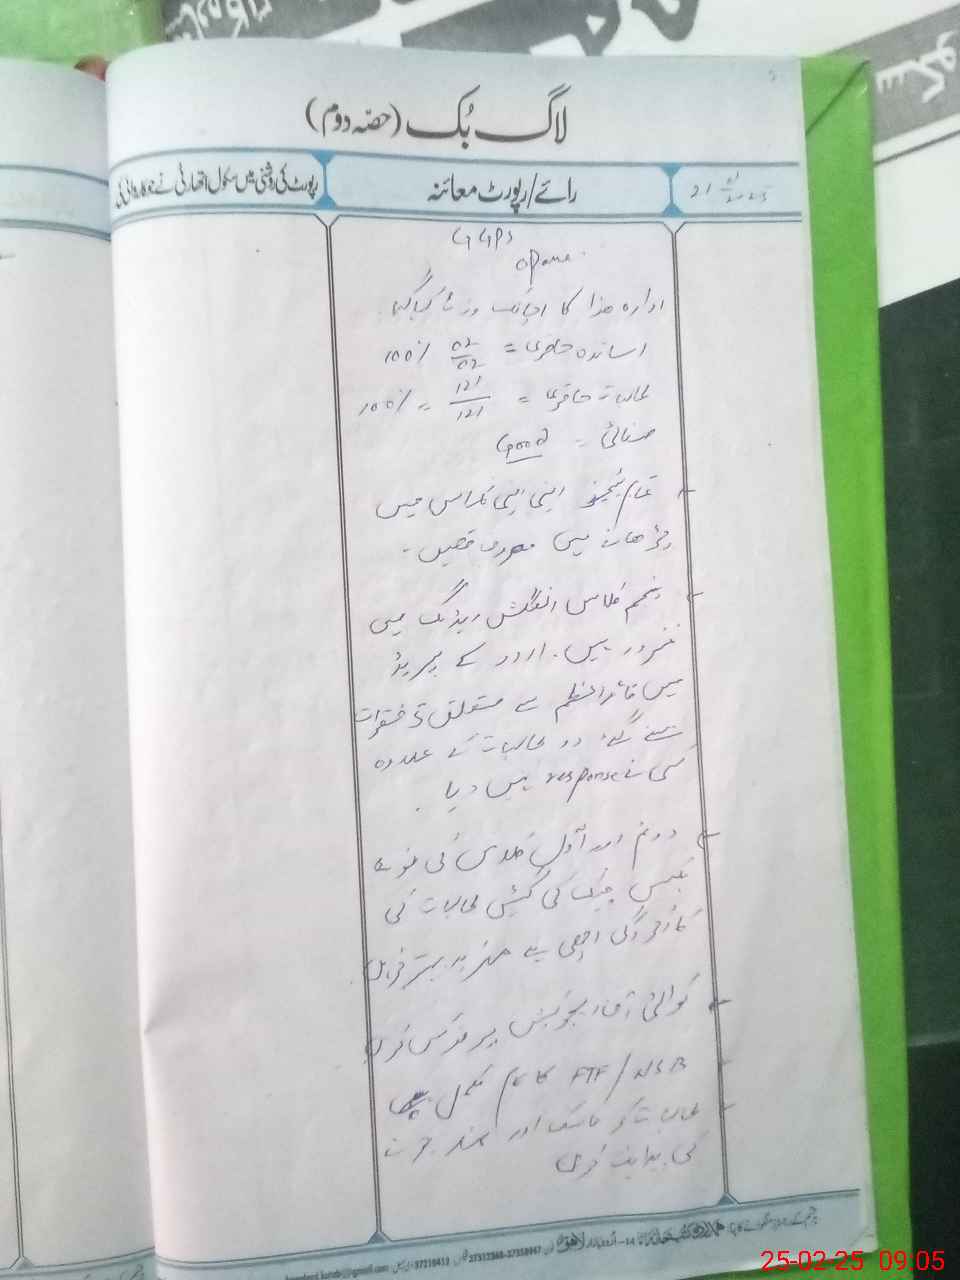 لاگ بُک (حصّہ دوم)
رائے/رپورٹ معائنہ
رپورٹ کی روشنی میں سکول اتھارٹی نے جو کاروائی کی
21
GGPS
ادارہ ھذا کا اچانک وزٹ کیا گیا۔
اساتذہ حاضری = 02/02 100%
طالبات حاضری = 121/121 = 100%
صفائی = Good
تمام ٹیچرز اپنی اپنی کلاس میں
پڑھانے میں مصروف تھیں۔
پنجم کلاس انگلش ریڈنگ میں
کمزور ہیں۔ اردو کے پیریڈ
میں قائداعظم سے متعلق فقرات
سنے گئے دو طالبات کے علاوہ
کسی نے response نہیں دیا۔
دوم اور اول کلاس کی
چیک کی گئیں طالبات کی
کارکردگی اچھی ہے مزید بہتر کریں
کوالٹی آف ایجوکیشن پر فوکس کریں
FTF / NSB کا کام مکمل
طالبات کو ماسک اور
کی ہدایت کریں
37312368-37358947
37210412
25-02-25 09:05